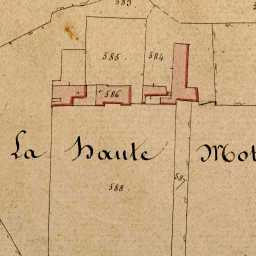 583
585
584
586
La haute Mot
588
587